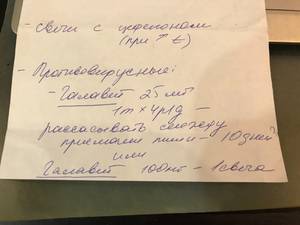 - свечи с цефеконом
(при ↑ t)
- Противовирусные:
- Галавит 25 мг
1т × 4р/д -
рассасывать между
приемами пищи - 10 дней
или
Галавит 100мг - 1 свеча